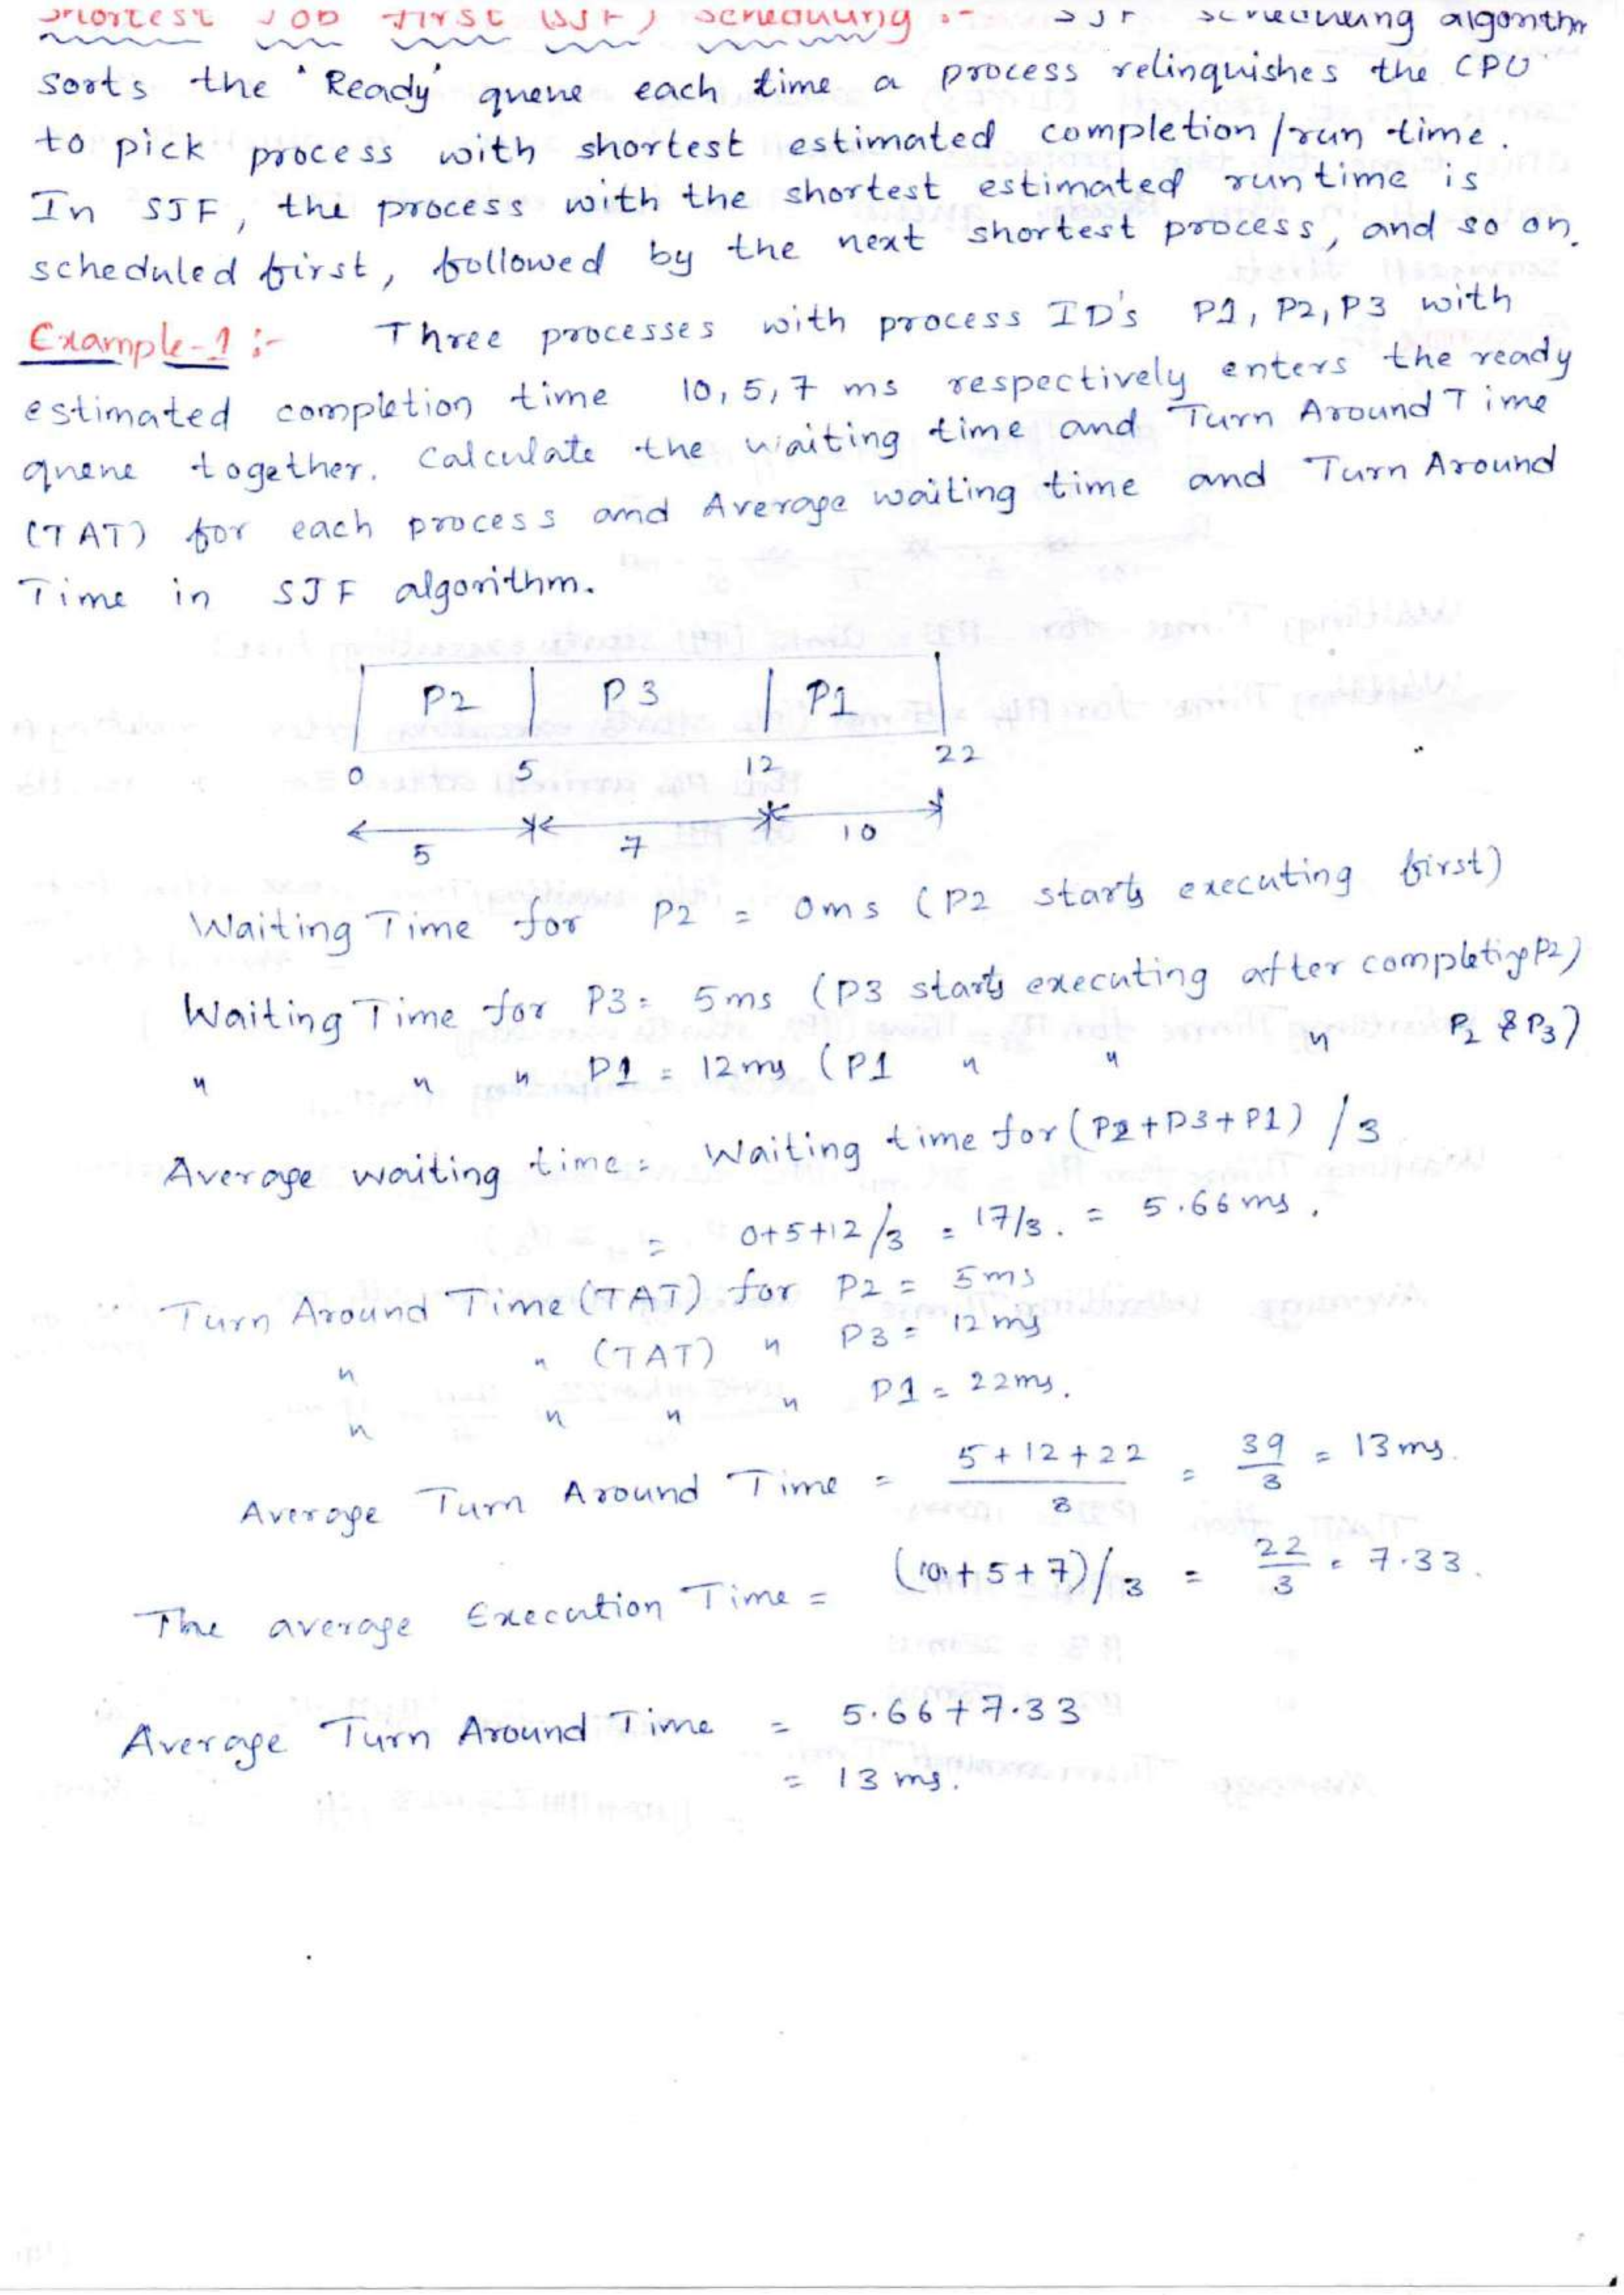 Shortest Job First (SJF) Scheduling :- SJF scheduling algorithm
sorts the 'Ready' queue each time a process relinquishes the CPU
to pick process with shortest estimated completion/run time.
In SJF, the process with the shortest estimated run time is
scheduled first, followed by the next shortest process, and so on.
Example-1 :- Three processes with process ID's P1, P2, P3 with
estimated completion time 10, 5, 7 ms respectively enters the ready
queue together. Calculate the waiting time and Turn Around Time
(TAT) for each process and Average waiting time and Turn Around
Time in SJF algorithm.
P2 P3 P1
0 5 12 22
5 7 10
Waiting Time for P2 = 0ms (P2 starts executing first)
Waiting Time for P3 = 5ms (P3 starts executing after completing P2)
" " " P1 = 12ms (P1 " " " P2 & P3)
Average waiting time = Waiting time for (P2+P3+P1) / 3
= 0+5+12/3 = 17/3. = 5.66 ms.
Turn Around Time (TAT) for P2 = 5ms
" " (TAT) " P3 = 12ms
" " " " P1 = 22ms.
Average Turn Around Time = 5+12+22 / 3 = 39/3 = 13ms.
The average Execution Time = (10+5+7)/3 = 22/3 = 7.33.
Average Turn Around Time = 5.66+7.33
= 13 ms.